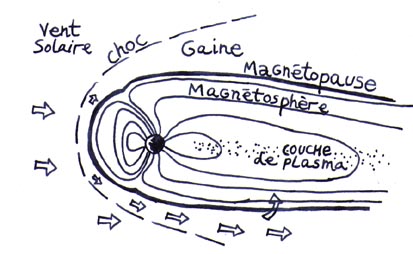 Vent
Solaire
choc
Gaine
Magnétopause
Magnétosphère
COUCHE
de PLASMA